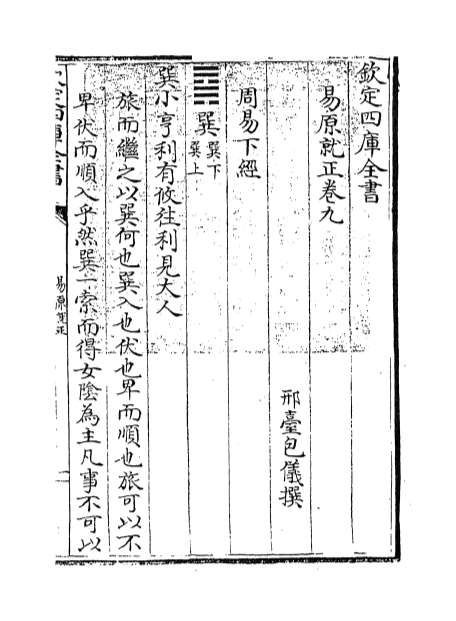 欽定四庫全書
易原就正卷九
邢臺包儀撰
周易下經
䷸巽巽下巽上
巽小亨利有攸往利見大人
旅而繼之以巽何也巽入也伏也卑而順也旅可以不
卑伏而順入乎然巽一索而得女陰為主凡事不可以
欽定四庫全書
易原就正
一